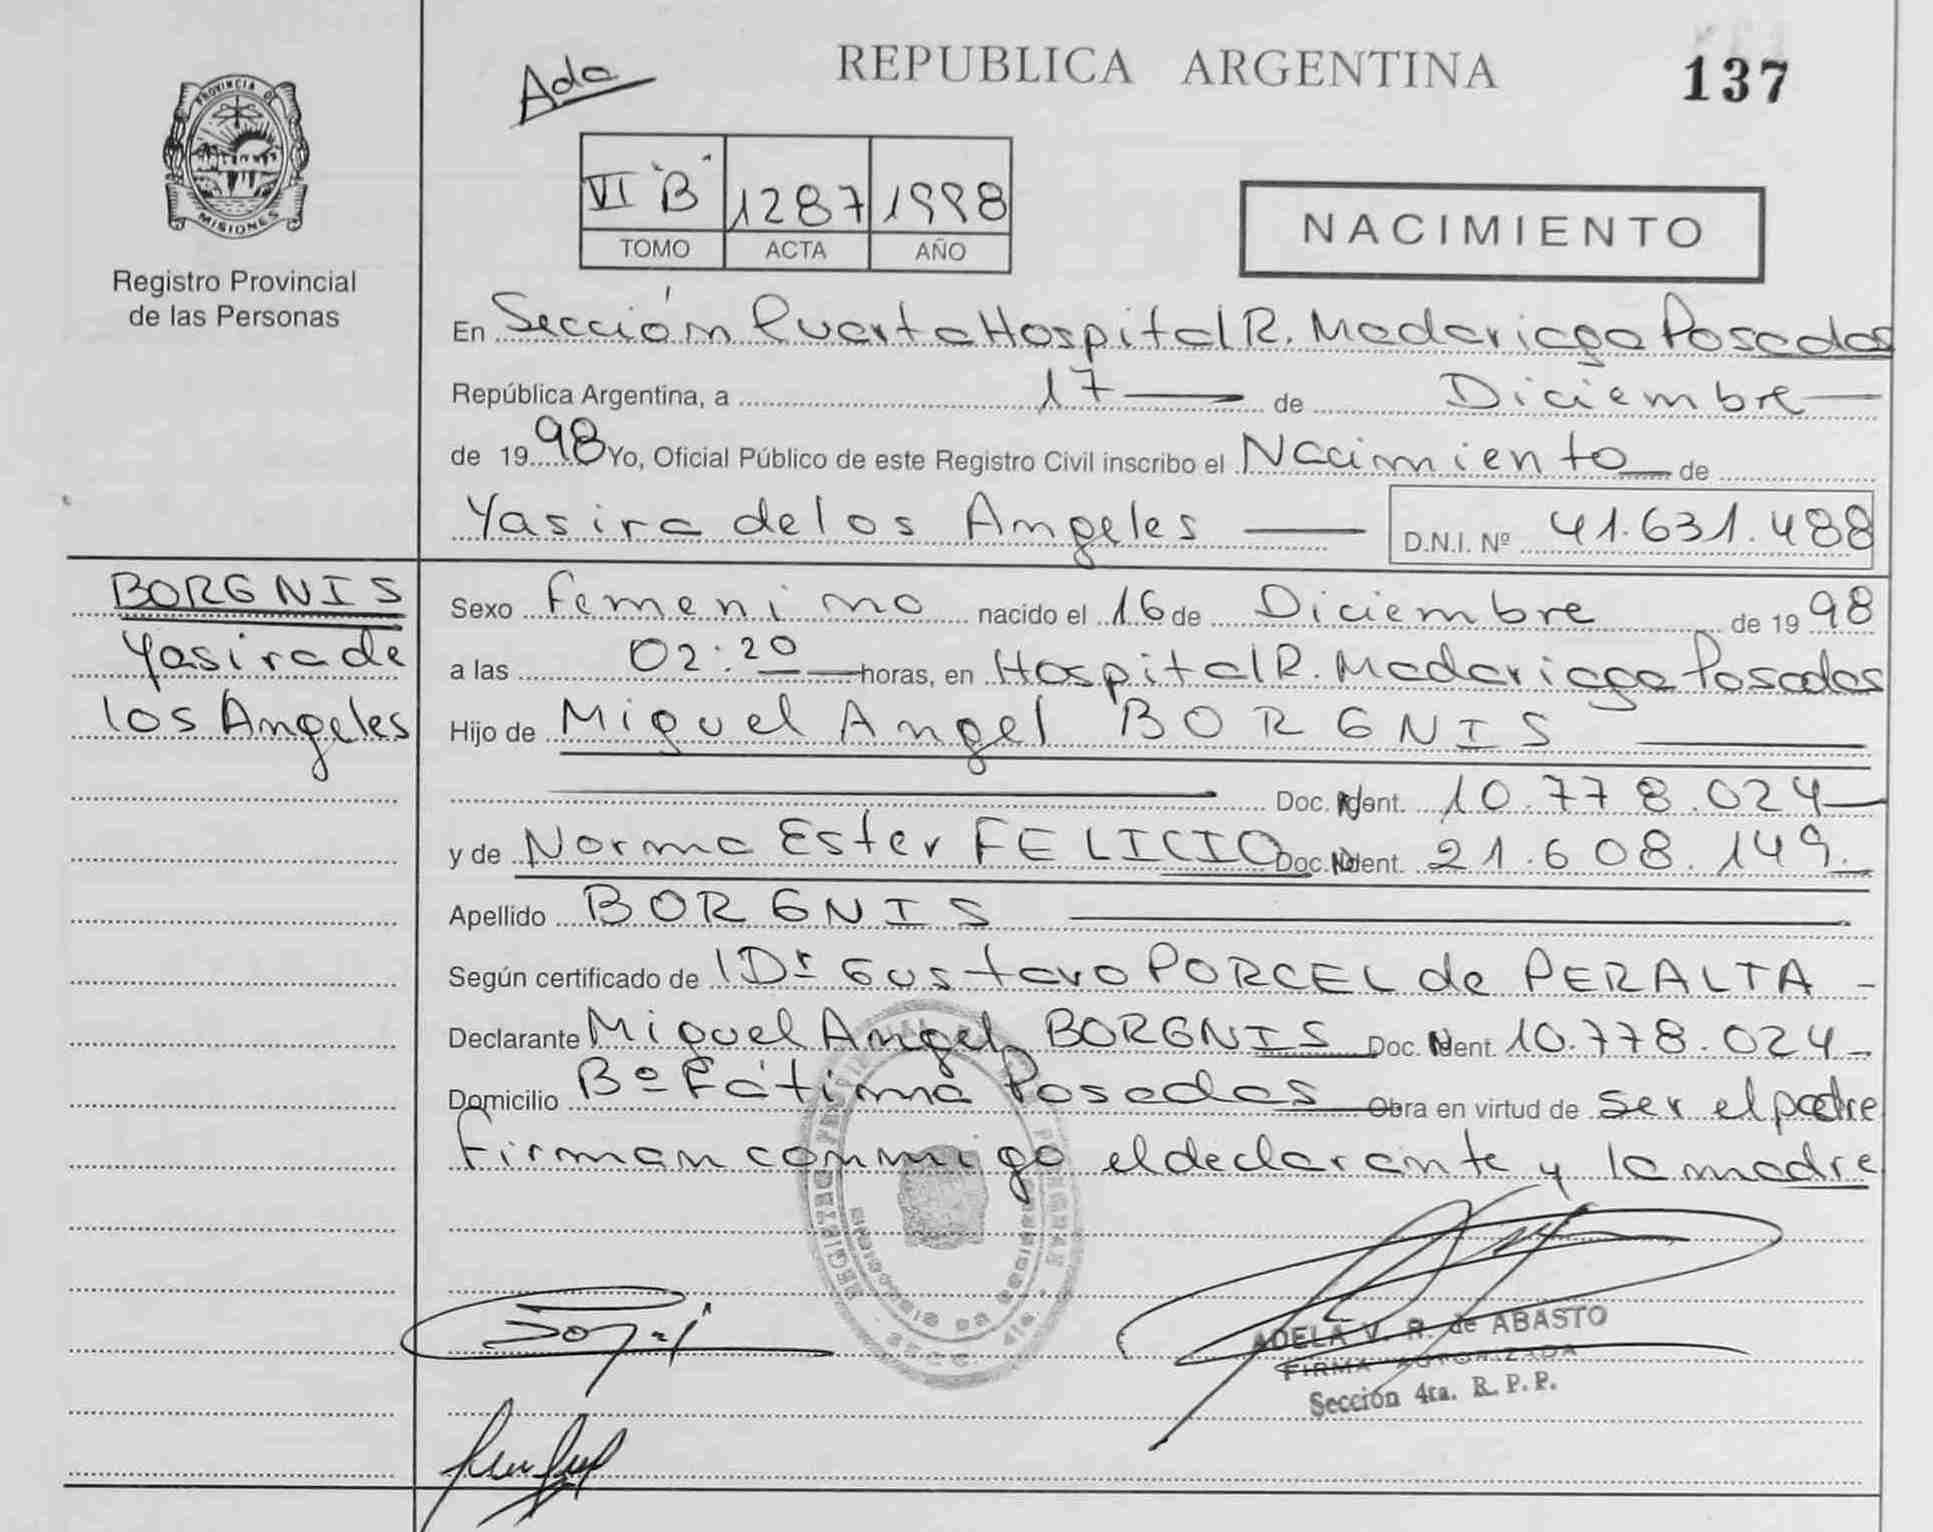 Ada
REPUBLICA ARGENTINA
137
PROVINCIA DE
MISIONES
Registro Provincial
de las Personas
VI "B" 1287 1998
TOMO ACTA AÑO
NACIMIENTO
En Sección Puerta Hospital R. Madariaga Posadas
República Argentina, a 17 de Diciembre
de 1998 Yo, Oficial Público de este Registro Civil inscribo el Nacimiento de
Yasira de los Angeles D.N.I. Nº 41.631.488
BORGNIS
Yasira de
los Angeles
Sexo femenino nacido el 16 de Diciembre de 1998
a las 02:20 horas, en Hospital R. Madariaga Posadas
Hijo de Miguel Angel BORGNIS
Doc. Ident. 10.778.024
y de Norma Ester FELICIO Doc. Ident. 21.608.149.
Apellido BORGNIS
Según certificado de Dr Gustavo PORCEL de PERALTA
Declarante Miguel Angel BORGNIS Doc. Ident. 10.778.024
Domicilio Bº Fátima Posadas Obra en virtud de ser el padre
firman conmigo el declarante y la madre
ADELA V. R. de ABASTO
FIRMA AUTORIZADA
Sección 4ta. R. P. P.